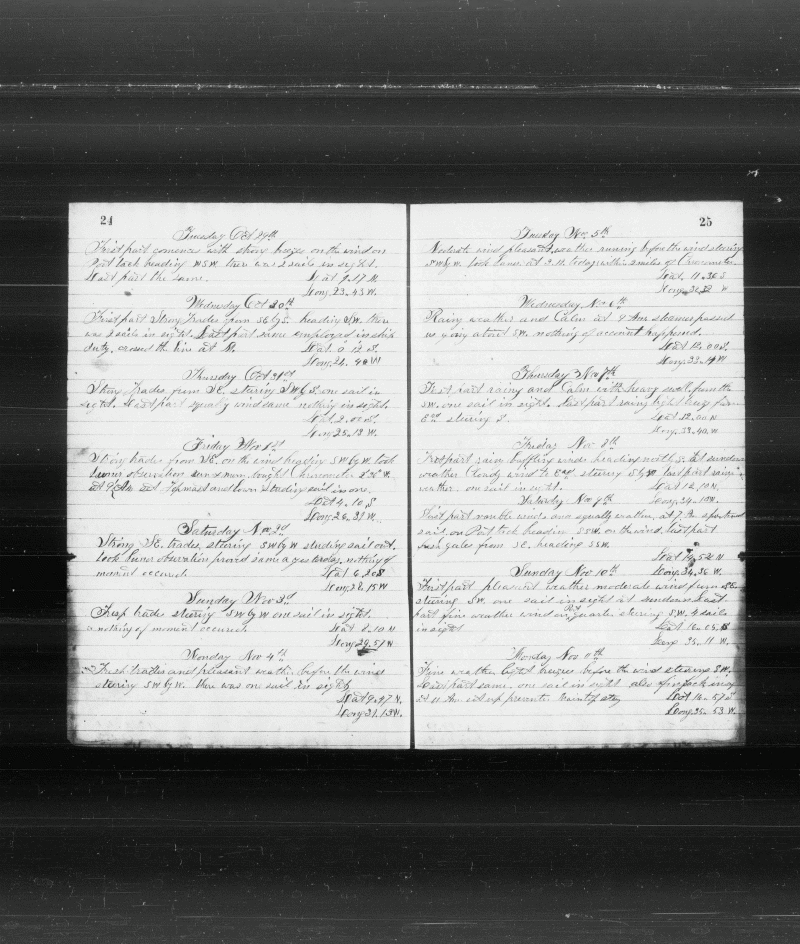 24
Tuesday Oct 29th
First part comences with strong breeze on the wind on
Port tack heading WSW. there was 2 sails in sight.
Last part the same. Lat 1.17 N.
Long 23.43 W.
Wednesday Oct 30th
First part Strong Trades from SbyE. heading SW. there
was 2 sails in sight. Last part same employed in ship
duty, crosed the line at 8. Lat 0 12 S.
Long 24. 40 W
Thursday Oct 31st
Strong Trades from SE. steering SWbyS. one sail in
sight. Last part squaly wind same nothing in sight.
Lat 2.00 S
Long 25.13 W.
Friday Nov 1st
Strong trades from SE. on the wind heading SWbyW. took
Lunar observation sun & moon. Chronometer
at sail in one.
Lat 4.10 S
Long 26.31 W.
Saturday Nov 2d
Strong SE. trades, steering SWbyW studing sail out.
took Lunar observation proved same as yesterday. nothing of
moment occured. Lat 6.20 S
Long 28.15 W
Sunday Nov 3d
Fresh trades steering SWbyW one sail in sight.
nothing of moment occured. Lat 8.10
Long 29.57 W.
Monday Nov 4th
Fresh trades and pleasant weather before the wind
steering SWbyW. there was one sail in sight
Lat 9.47
Long 31.13 W.
25
Tuesday Nov 5th
Moderate wind pleasant weather running before the wind steering
SWbyW. took Lunar at 3 today within 2 miles of Chronometer.
Lat. 11.36 S
Long 32.32 W
Wednesday Nov 6th
Rainy weather and Calm at 4 Am steamer passed
us going about SW. nothing of account happened.
Lat 12.00 S.
Long. 33.14 W
Thursday Nov 7th
First part rainy and Calm with heavy swell from the
SW. one sail in sight. Last part rainy light breeze from
Ed steering S. Lat 12.00
Long. 33.40 W.
Friday Nov 8th
First part rain baffling winds heading South S. at sundown
weather Cleady wind to Ed steering SbyW last part rainy
weather. one sail in sight. Lat 12.10
Saturday Nov 9th Long 34.10 W.
First part variable winds and squally weather, at 7 Am
sail on Port tack heading SSW. on the wind. last part
fresh gales from SE. heading SSW.
Lat 14.52
Long. 34.36 W.
Sunday Nov 10th
First part pleasant weather moderate wind from SE.
steering SW. one sail in sight at sundown Last
part fine weather wind on Port quarter steering SW. 4 sails
in sight Lat 16.05 S
Long 35.11 W.
Monday Nov 11th
Fine weather light breezes before the wind steering SW.
Last part same. one sail in sight also
at 11 Am set up preventer maintop stay Lat 16.57 S
Long 35.53 W.